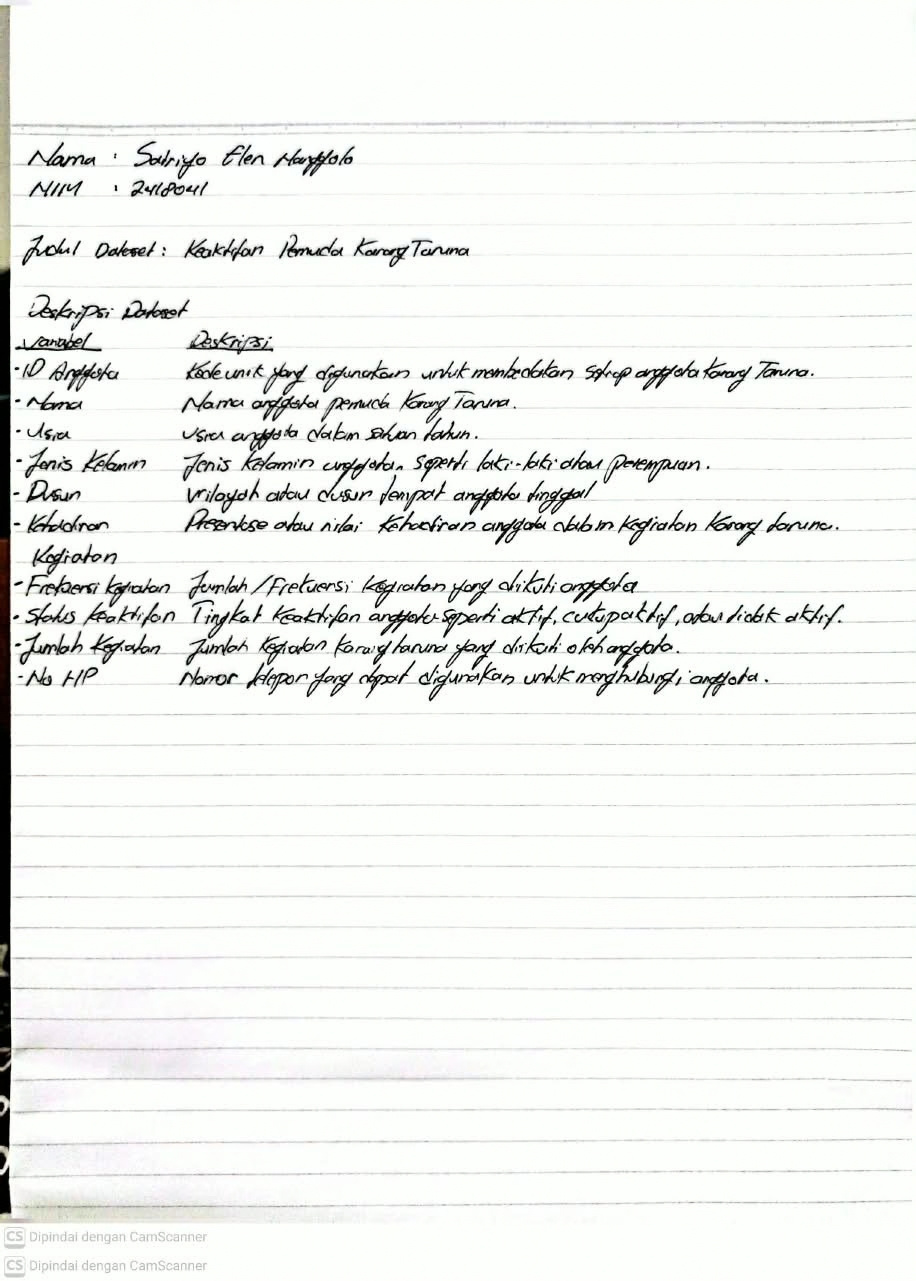 Nama : Satriyo Elen Manggolo
NIM : 2418041
Judul Dataset : Keaktifan Pemuda Karang Taruna
Deskripsi Dataset
Variabel Deskripsi
- ID Anggota Kode unik yang digunakan untuk membedakan setiap anggota Karang Taruna.
- Nama Nama anggota pemuda Karang Taruna.
- Usia Usia anggota dalam satuan tahun.
- Jenis Kelamin Jenis Kelamin anggota, seperti laki-laki atau perempuan.
- Dusun Wilayah atau dusun tempat anggota tinggal
- Kehadiran Presentase atau nilai Kehadiran anggota dalam Kegiatan Karang taruna.
Kegiatan
- Frekuensi Kegiatan Jumlah/Frekuensi Kegiatan yang diikuti anggota
- Status Keaktifan Tingkat Keaktifan anggota seperti aktif, cukup aktif, atau tidak aktif.
- Jumlah Kegiatan Jumlah Kegiatan Karang taruna yang diikuti oleh anggota.
- No HP Nomor telepon yang dapat digunakan untuk menghubungi anggota.
CS Dipindai dengan CamScanner
CS Dipindai dengan CamScanner